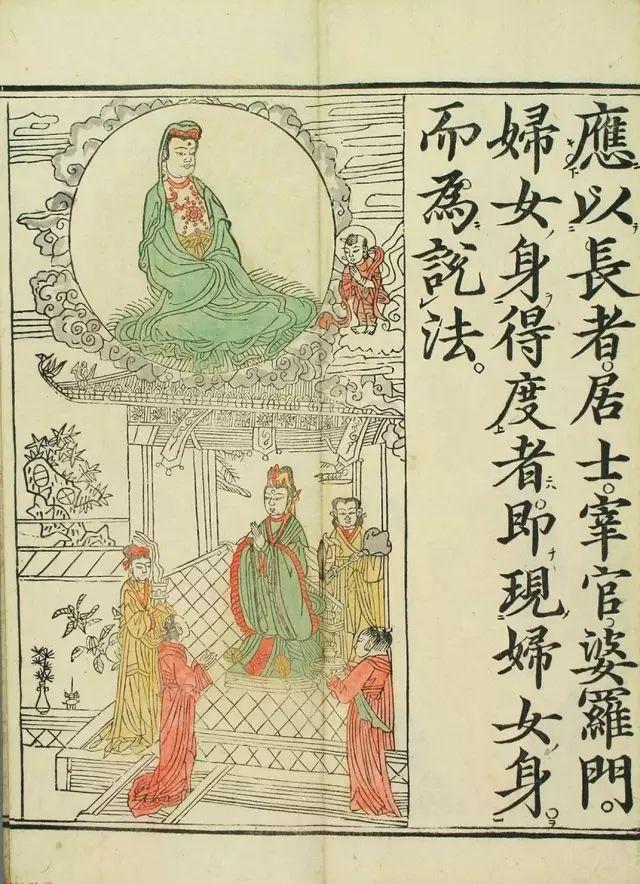 應以長者。居士。宰官婆羅門。
婦女身得度者。即現婦女身
而為説法。